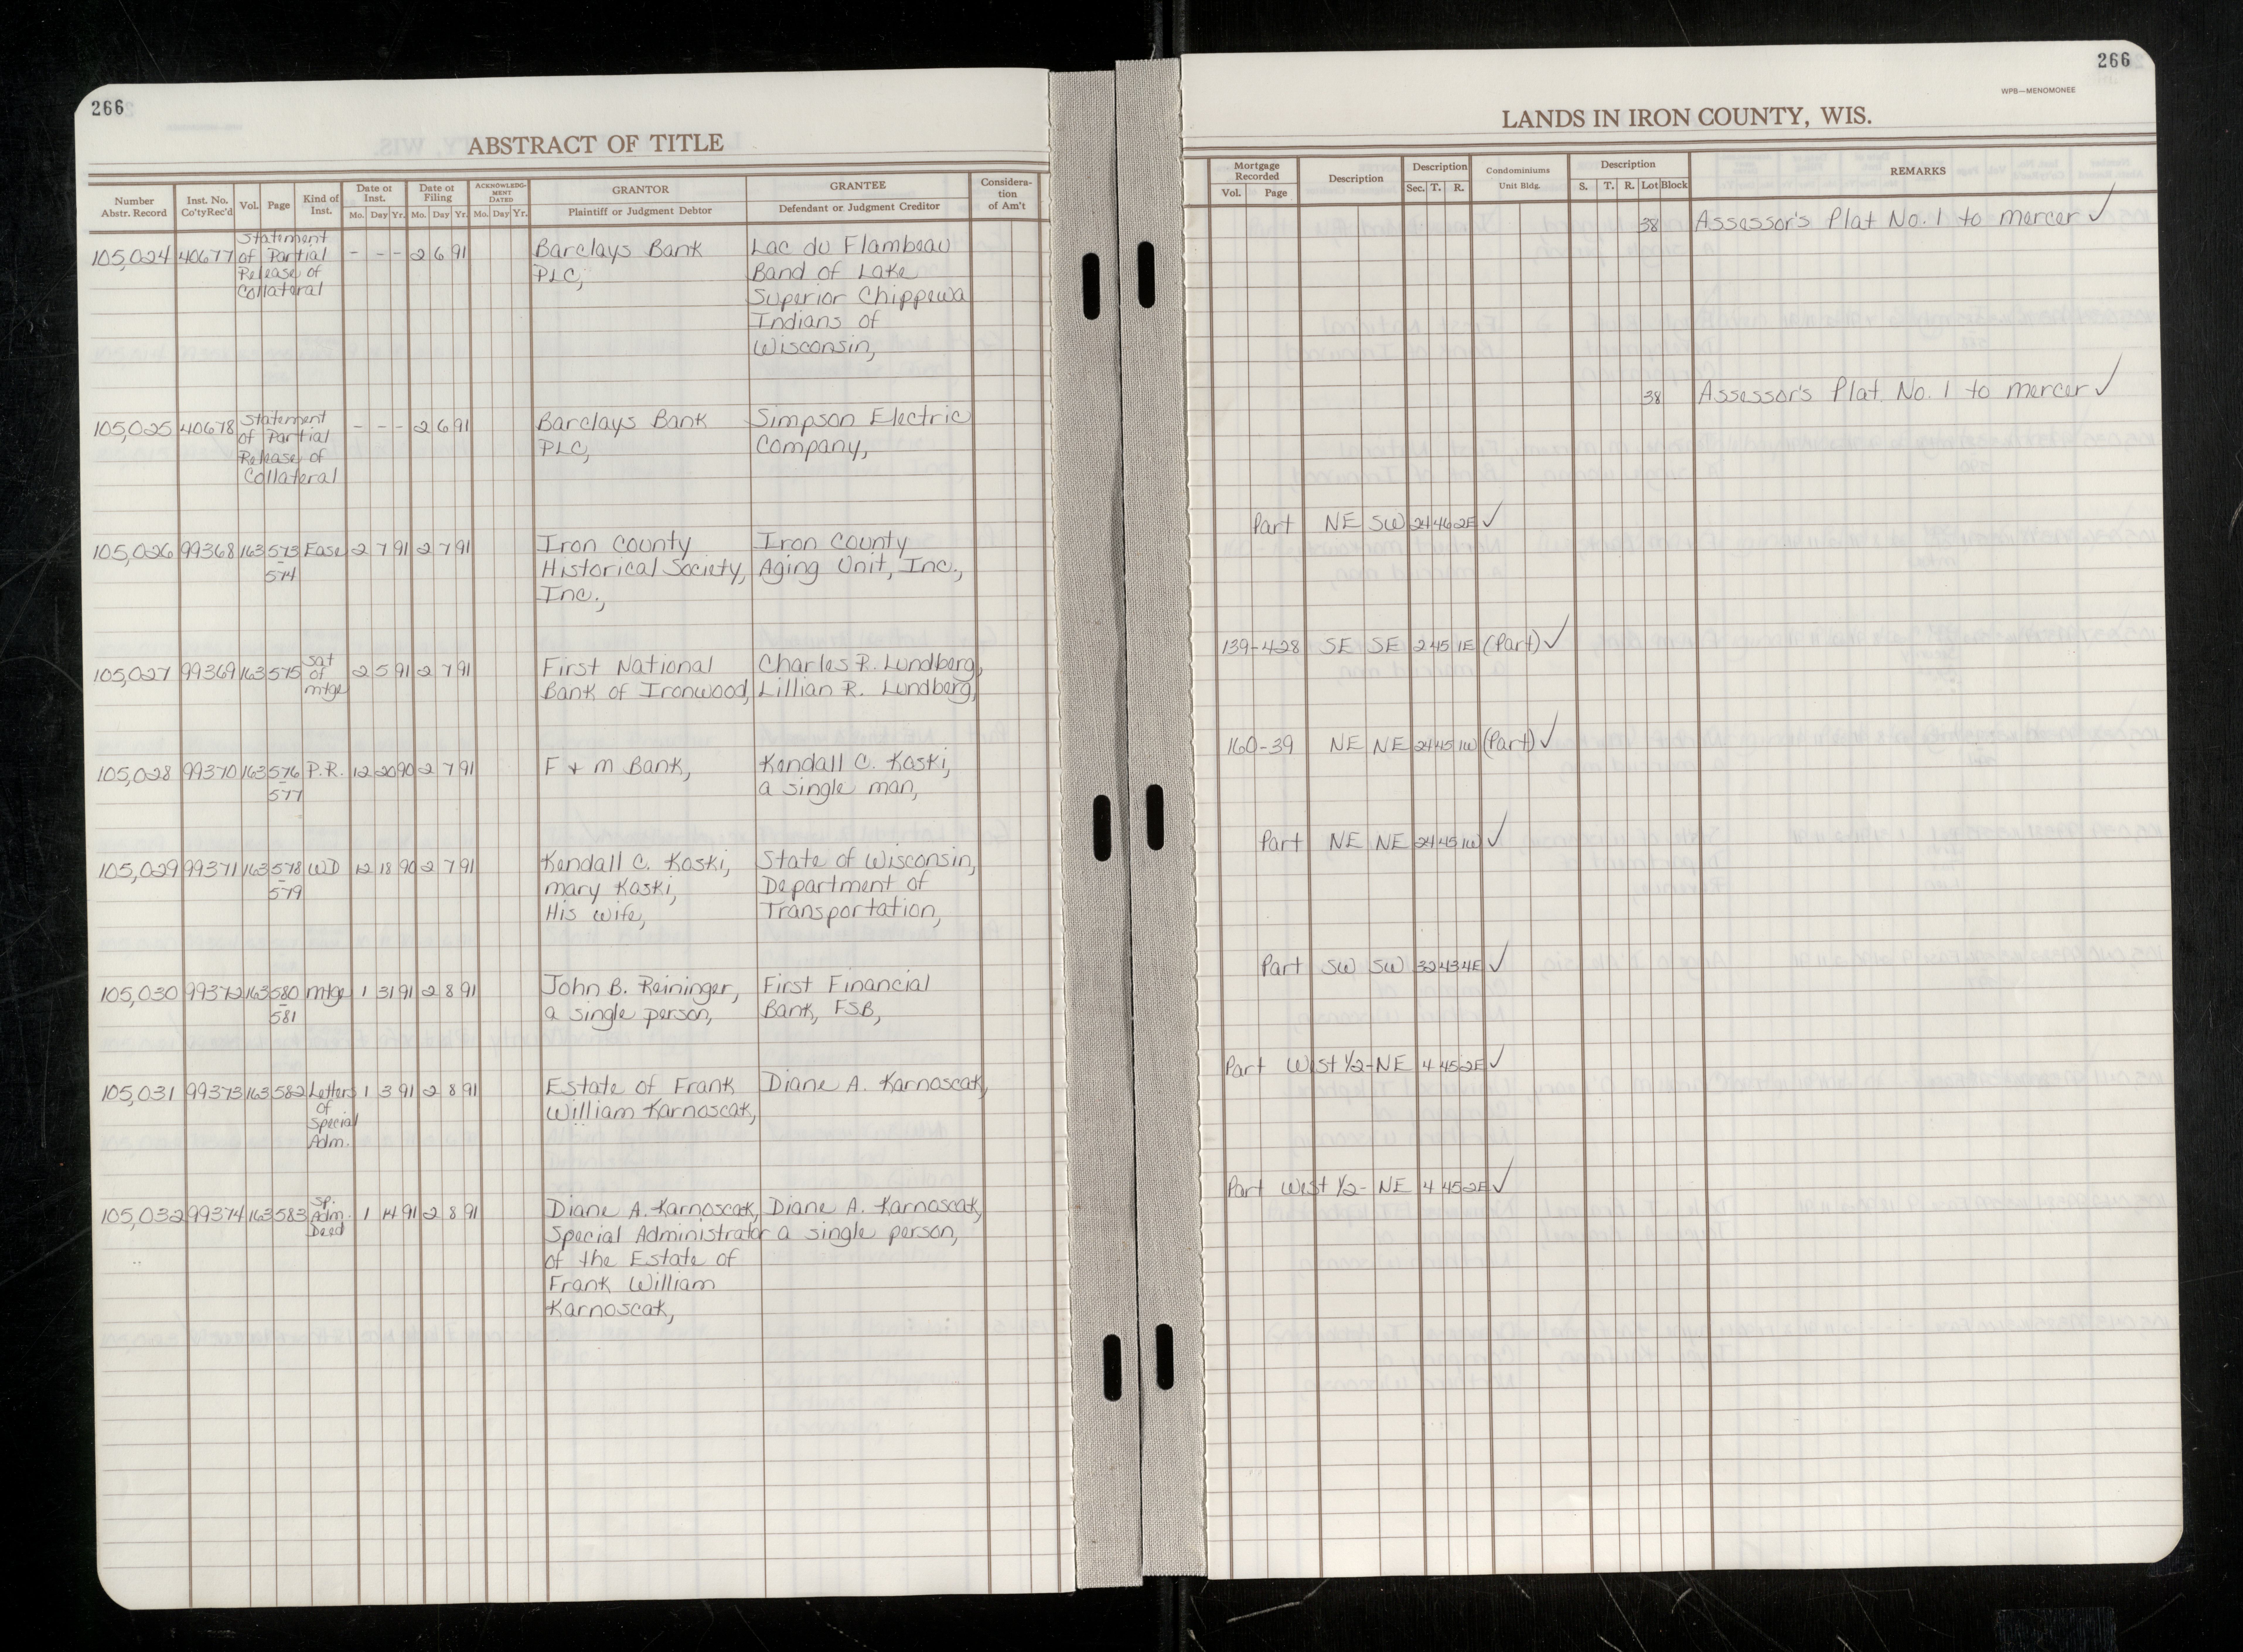 266
ABSTRACT OF TITLE
Number Abstr. Record | Inst. No. Co'ty Rec'd | Vol. | Page | Kind of Inst. | Date of Inst. Mo. Day Yr. | Date of Filing Mo. Day Yr. | ACKNOWLEDGMENT DATED Mo. Day Yr. | GRANTOR Plaintiff or Judgment Debtor | GRANTEE Defendant or Judgment Creditor | Consideration of Am't
105,024 40677 Statement of Partial Release of Collateral - - - 2 6 91 Barclays Bank Lac du Flambeau
PLC, Band of Lake
Superior Chippewa
Indians of
Wisconsin,
105,025 40678 Statement of Partial Release of Collateral - - - 2 6 91 Barclays Bank Simpson Electric
PLC, Company,
105,026 99368 163 573 - 574 Ease 2 7 91 2 7 91 Iron County Iron County
Historical Society, Aging Unit, Inc.,
Inc.,
105,027 99369 163 575 Sat of mtge 2 5 91 2 7 91 First National Charles R. Lundberg,
Bank of Ironwood, Lillian R. Lundberg,
105,028 99370 163 576 - 577 P.R. 12 20 90 2 7 91 F + m Bank, Kendall C. Koski,
a single man,
105,029 99371 163 578 - 579 WD 12 18 90 2 7 91 Kendall C. Koski, State of Wisconsin,
mary Koski, Department of
His wife, Transportation,
105,030 99372 163 580 - 581 mtge 1 31 91 2 8 91 John B. Reininger, First Financial
a single person, Bank, FSB,
105,031 99373 163 582 Letters of Special Adm. 1 3 91 2 8 91 Estate of Frank Diane A. Karnoscak,
William Karnoscak,
105,032 99374 163 583 Sp. Adm. Deed 1 14 91 2 8 91 Diane A. Karnoscak, Diane A. Karnoscak,
Special Administrator a single person,
of the Estate of
Frank William
Karnoscak,
266
WPB—MENOMONEE
LANDS IN IRON COUNTY, WIS.
Mortgage Recorded Vol. Page | Description | Description Sec. T. R. | Condominiums Unit Bldg. | Description S. T. R. Lot Block | REMARKS
38 Assessor's Plat No. 1 to mercer ✓
38 Assessor's Plat. No. 1 to mercer ✓
Part NE SW 24 46 2E ✓
139-428 SE SE 2 45 1E (Part) ✓
160-39 NE NE 24 45 1W (Part) ✓
Part NE NE 24 45 1W ✓
Part SW SW 32 43 4E ✓
Part West 1/2-NE 4 45 2E ✓
Part West 1/2- NE 4 45 2E ✓